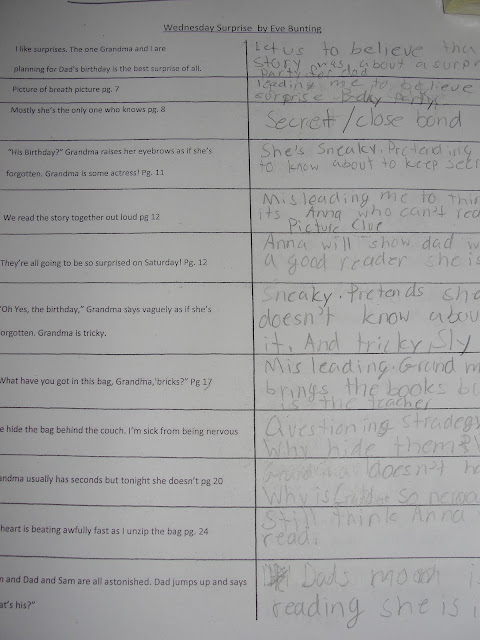 Wednesday Surprise by Eve Bunting
I like surprises. The one Grandma and I are
planning for Dad's birthday is the best surprise of all.
Let us to believe tha
story was about a surpr
party for dad
Picture of breath picture pg. 7
leading me to believe
surprise b-day party.
Mostly she's the only one who knows pg. 8
Secret/close bond
"His Birthday?" Grandma raises her eyebrows as if she's
forgotten. Grandma is some actress! Pg. 11
She's Sneaky. Pretending
to know about to keep secr
We read the story together out loud pg 12
Misleading me to thin
its Anna who can't rea
Picture Clue
They're all going to be so surprised on Saturday! Pg. 12
Anna will show dad w
a good reader she is
"Oh Yes, the birthday," Grandma says vaguely as if she's
orgotten. Grandma is tricky.
Sneaky. Pretends she
doesn't know abou
it. And tricky, Sly
What have you got in this bag, Grandma,'bricks?" Pg 17
Mis leading. Grand m
brings the books bu
is the teacher
e hide the bag behind the couch. I'm sick from being nervous
Questioning stradegy
Why hide them?
andma usually has seconds but tonight she doesn't pg 20
Grandma doesn't ha
Why is Grandma so
heart is beating awfully fast as I unzip the bag pg. 24
Still think Anna
read.
n and Dad and Sam are all astonished. Dad jumps up and says
at's his?"
Dads
reading she is i